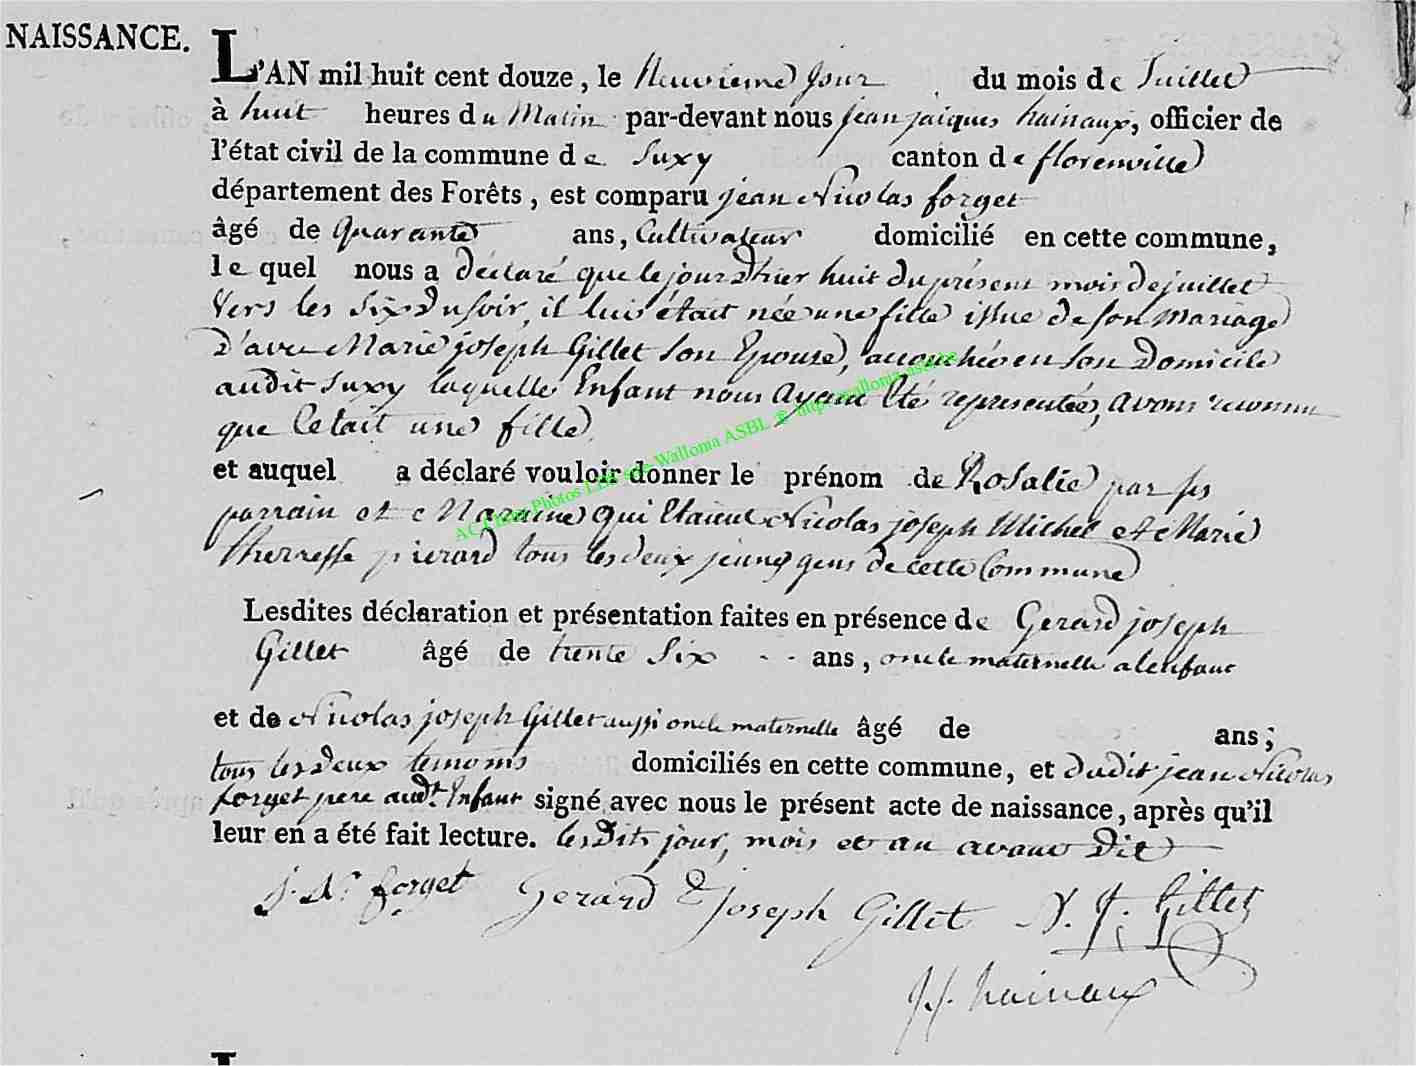 NAISSANCE.
L'AN mil huit cent douze, le Neuvieme jour du mois de Juillet
à huit heures du Matin par-devant nous jean jaiques hainaux, officier de
l'état civil de la commune de Suxy canton de florenville
département des Forêts, est comparu jean Nicolas forget
âgé de Quarante ans, Cultivateur domicilié en cette commune,
lequel nous a déclaré que le jour d'hier huit du présent mois de juillet
vers les Six du soir, il lui était née une fille issue de son Mariage
D'avec Marie joseph Gillet Son Epouse, accouchée en Son Domicile
audit Suxy laquelle Enfant nous Ayant Eté representée, avons reconnu
que Cetait une fille.
et auquel a déclaré vouloir donner le prénom de Rosalie par ses
parrain et Maraine qui Etaient Nicolas joseph Michel et Marie
therresse pierard tous les deux jeunes gens de cette Commune
Lesdites déclaration et présentation faites en présence de Gerard joseph
Gillet âgé de trente Six -- ans, oncle maternelle a lenfant
et de Nicolas joseph Gillet aussi oncle maternelle âgé de ans;
tous les deux temoins domiciliés en cette commune, et dudit jean Nicolas
forget pere audt. Enfant signé avec nous le présent acte de naissance, après qu'il
leur en a été fait lecture. les Dits jour, mois et an avant Dit
J. Ns. forget Gerard Joseph Gillet N. J. Gillet
J J. hainaux